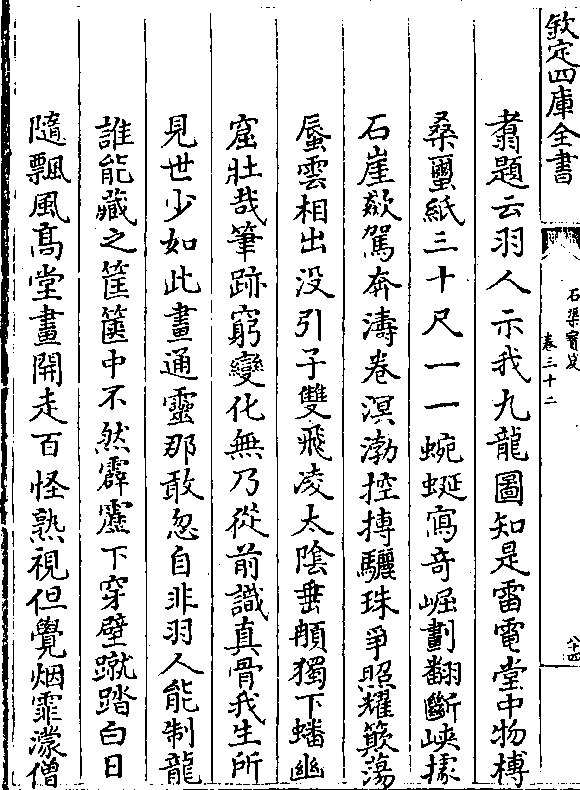 欽定四庫全書
石渠寳笈
卷三十二
八十四
翥題云羽人示我九龍圖知是雷電堂中物榑
桑璽紙三十尺一一蜿蜒寫竒崛劃翻斷峽擡
石崖欻駕奔濤卷溟渤控摶驪珠爭照耀簸蕩
蜃雲相出没引子雙飛凌太陰垂頏獨下蟠幽
窟壯哉筆跡窮變化無乃從前識真骨我生所
見世少如此畫通靈那敢忽自非羽人能制龍
誰能藏之筐篋中不然霹靂下穿壁蹴踏白日
隨飄風髙堂晝開走百怪熟視但覺烟霏濛僧